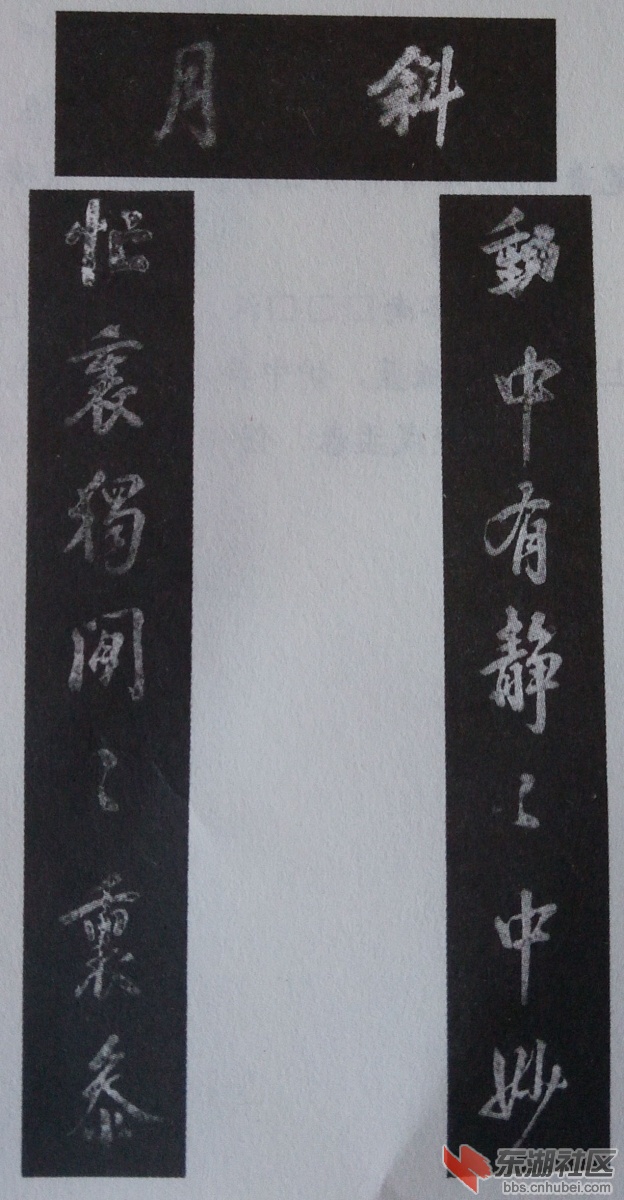 斜月
動中有静〻中妙
忙裏獨閒〻裏叅
东湖社区
bbs.cnhubei.com